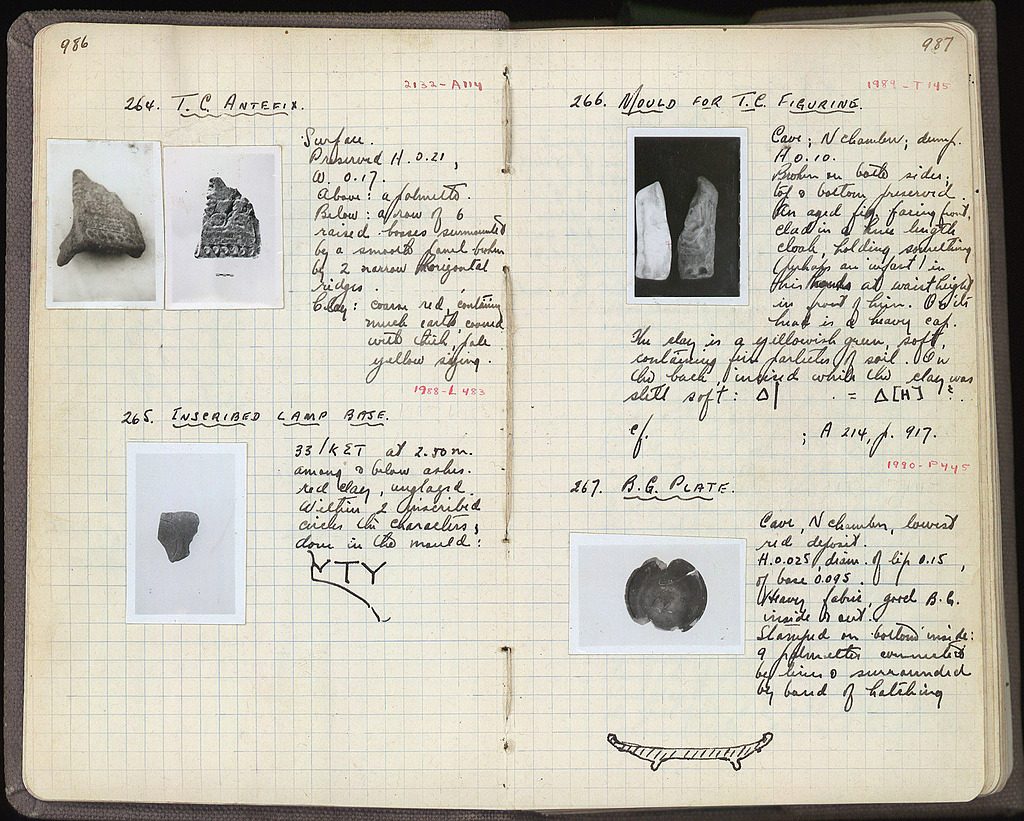 986
2132-A114
264. T.C. ANTEFIX.
Surface.
Preserved H. 0.21,
W. 0.17.
Above: a palmette.
Below: a row of 6
raised bosses surmounted
by a smooth panel broken
by 2 narrow horizontal
ridges.
Clay: coarse red, containing
much earth, covered
with thick, pale
yellow sizing.
1988-L 483
265. INSCRIBED LAMP BASE.
33/KET at 2.50 m.
among & below ashes.
red clay, unglazed.
Within 2 inscribed
circles the characters,
done in the mould:
ΥΤΥ
987
1989-T 145
266. MOULD FOR T.C. FIGURINE.
Cave; N chamber; dump.
H 0.10.
Broken on both sides;
top & bottom preserved
An aged fig. facing front,
clad in a knee length
cloak, holding something
(perhaps an infant) in
his hands at waist height
in front of him. On his
head is a heavy cap.
The clay is a yellowish green, soft,
containing fine particles of soil. On
the back, incised while the clay was
still soft: Δ| = Δ[H] ?
cf. ; A 214, p. 917.
1990-P445
267. B.G. PLATE.
Cave, N chamber, lowest
red deposit.
H. 0.025, diam. of lip 0.15,
of base 0.095.
Heavy fabric, good B.G.
inside & out.
Stamped on bottom inside:
9 palmettes connected
by lines & surrounded
by band of hatching